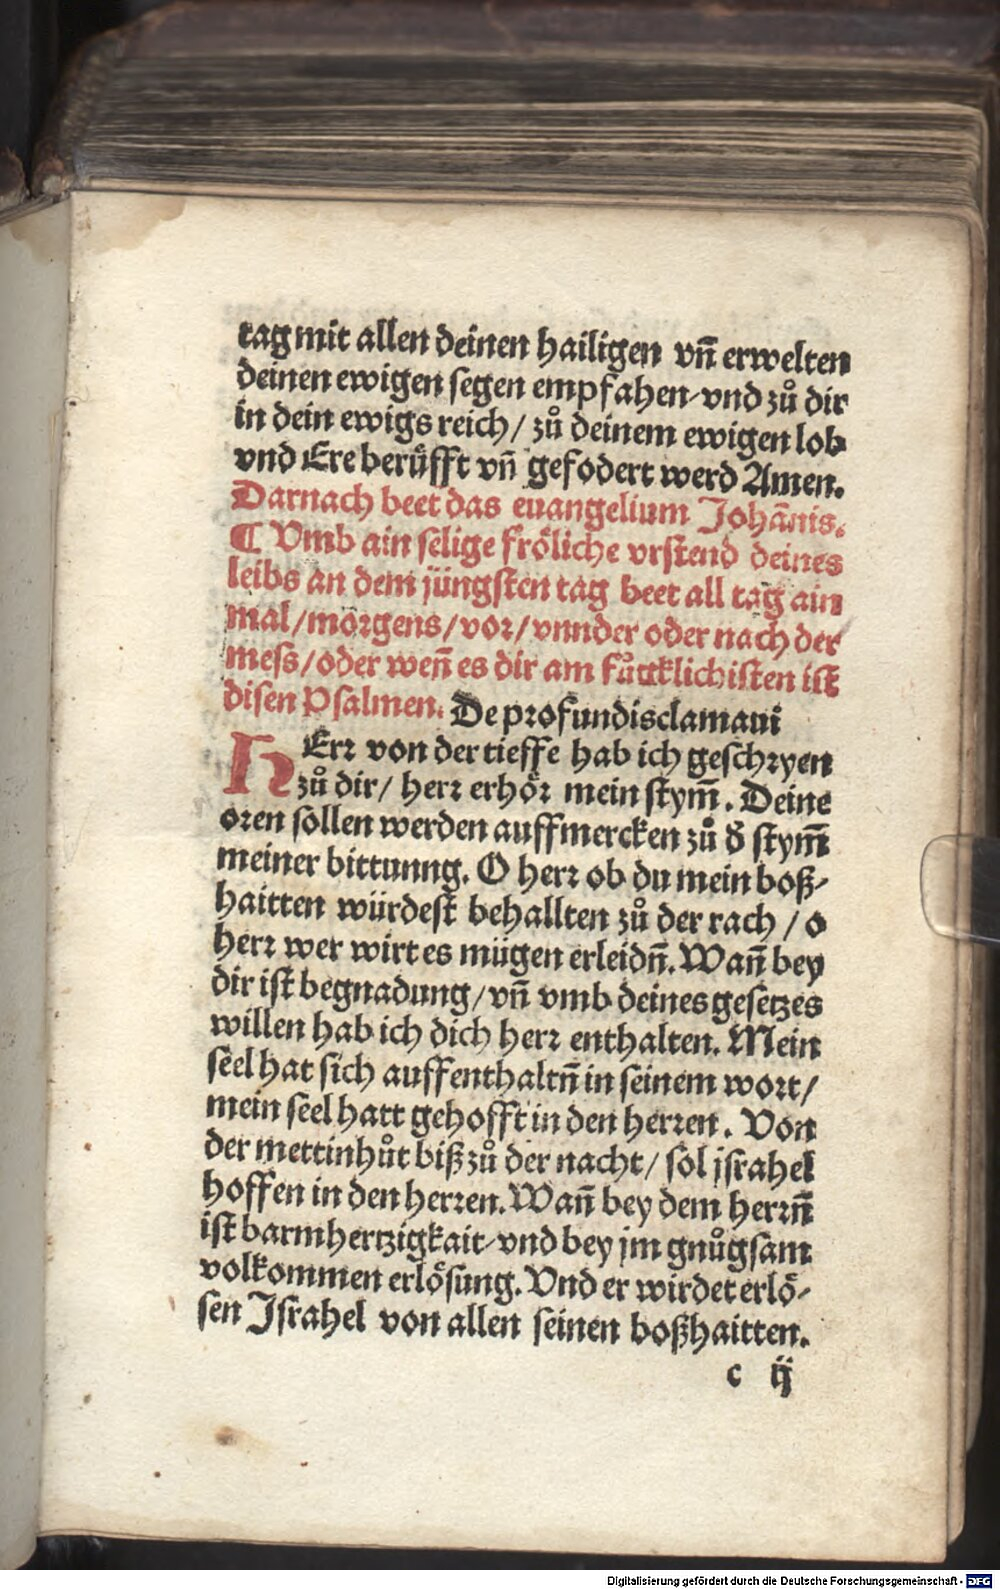 tag mit allen deinen hailigen vn̄ erwelten
deinen ewigen segen empfahen-vnd zů dir
in dein ewigs reich/ zů deinem ewigen lob
vnd Ere berüfft vn̄ gefodert werd Amen.
Darnach beet das euangelium Johānis.
¶ Vmb ain selige fröliche vrstend deines
leibs an dem jüngsten tag beet all tag ain
mal/morgens/vor/vnnder oder nach der
mess/oder wen̄ es dir am fůgklichisten ist
disen Psalmen. De profundisclamaui
HErr von der tieffe hab ich geschryen
zů dir/ herr erhör mein stym̄. Deine
oren sollen werden auffmercken zů d̄ stym̄
meiner bittunng. O herr ob du mein boß-
haitten würdest behallten zů der rach / o
herr wer wirt es mügen erleidn̄. Wan̄ bey
dir ist begnadung/vn̄ vmb deines gesetzes
willen hab ich dich herr enthalten. Mein
seel hat sich auffenthaltn̄ in seinem wort/
mein seel hatt gehofft in den herren. Von
der mettinhůt biß zů der nacht/ sol jsrahel
hoffen in den herren. Wan̄ bey dem herrn̄
ist barmhertzigkait-vnd bey jm gnůgsam
volkommen erlösung. Vnd er wirdet erlö-
sen Jsrahel von allen seinen boßhaitten.
c ij
Digitalisierung gefördert durch die Deutsche Forschungsgemeinschaft - DFG